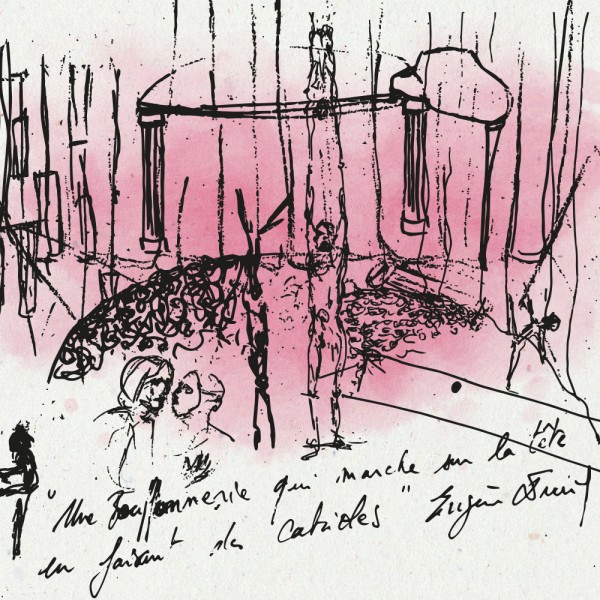 "Une Bouffonnerie qui marche sur la tête
en faisant des cabrioles" Eugène